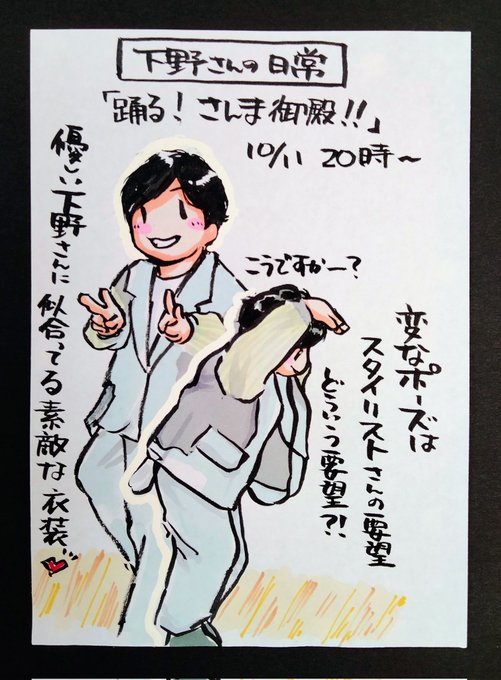 下野さんの日常
「踊る！さんま御殿!!」
10/11 20時～
優しい下野さんに
似合ってる素敵な衣装!!
こうですかー？
変なポーズは
スタイリストさんの要望
どういう要望?!